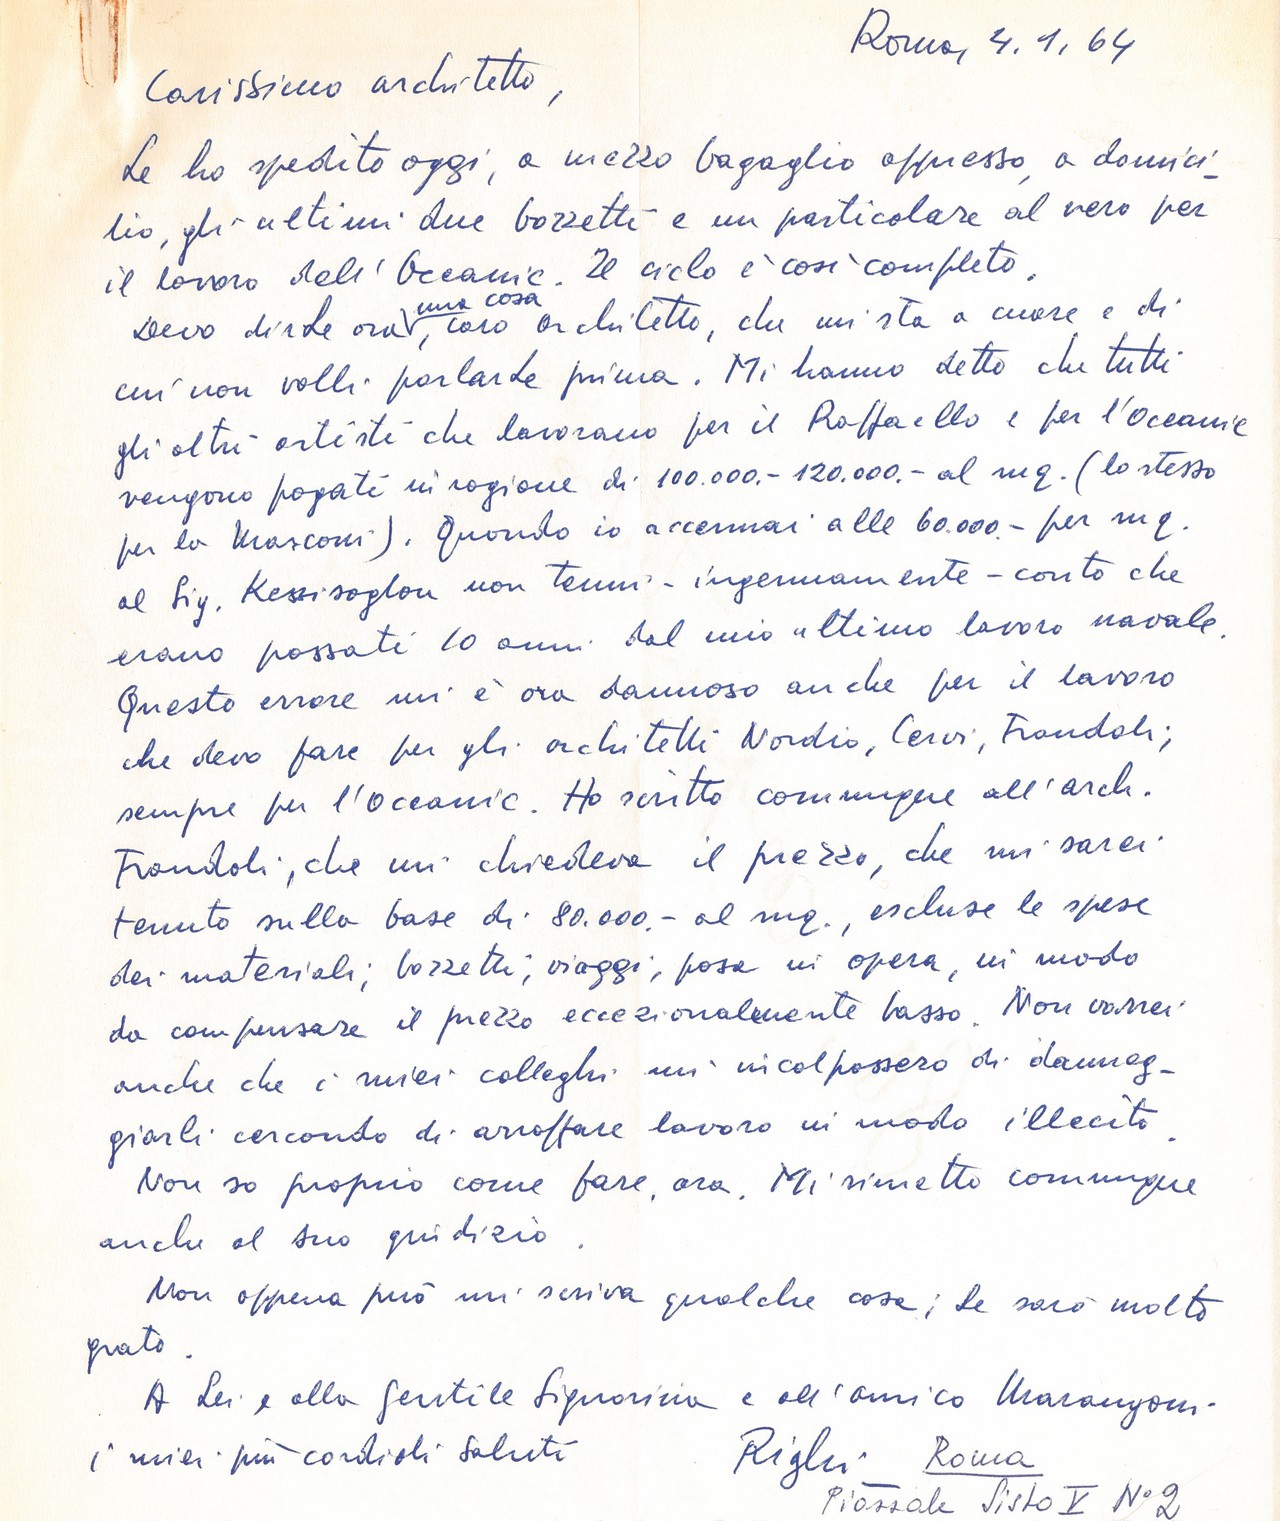 Roma, 4.1.64
Carissimo architetto,
Le ho spedito oggi, a mezzo bagaglio appresso, a domici-
lio, gli ultimi due bozzetti e un particolare al vero per
il lavoro dell'Oceanic. Il ciclo è così completo.
Devo dirLe ora una cosa, caro architetto, che mi sta a cuore e di
cui non volli parlarLe prima. Mi hanno detto che tutti
gli altri artisti che lavorano per il Raffaello e per l'Oceanic
vengono pagati in ragione di 100.000.- 120.000.- al mq. (lo stesso
per la Masconi). Quando io accennai alle 60.000.- per mq.
al Sig. Kessisoglou non tenni - ingenuamente - conto che
erano passati 10 anni dal mio ultimo lavoro navale.
Questo errore mi è ora dannoso anche per il lavoro
che devo fare per gli architetti Nordio, Cervi, Frandoli;
sempre per l'Oceanic. Ho scritto comunque all'arch.
Frandoli, che mi chiedeva il prezzo, che mi sarei
tenuto sulla base di 80.000.- al mq., escluse le spese
dei materiali, bozzetti, viaggi, posa in opera, in modo
da compensare il prezzo eccezionalmente basso. Non vorrei
anche che i miei colleghi mi incolpassero di danneg-
giarli cercando di arraffare lavoro in modo illecito.
Non so proprio come fare, ora. Mi rimetto comunque
anche al suo giudizio.
Non appena può mi scriva qualche cosa; Le sarò molto
grato.
A Lei e alla Gentile Signorina e all'amico Marangoni
i miei più cordiali saluti
Righi Roma
Piazzale Sisto V No 2